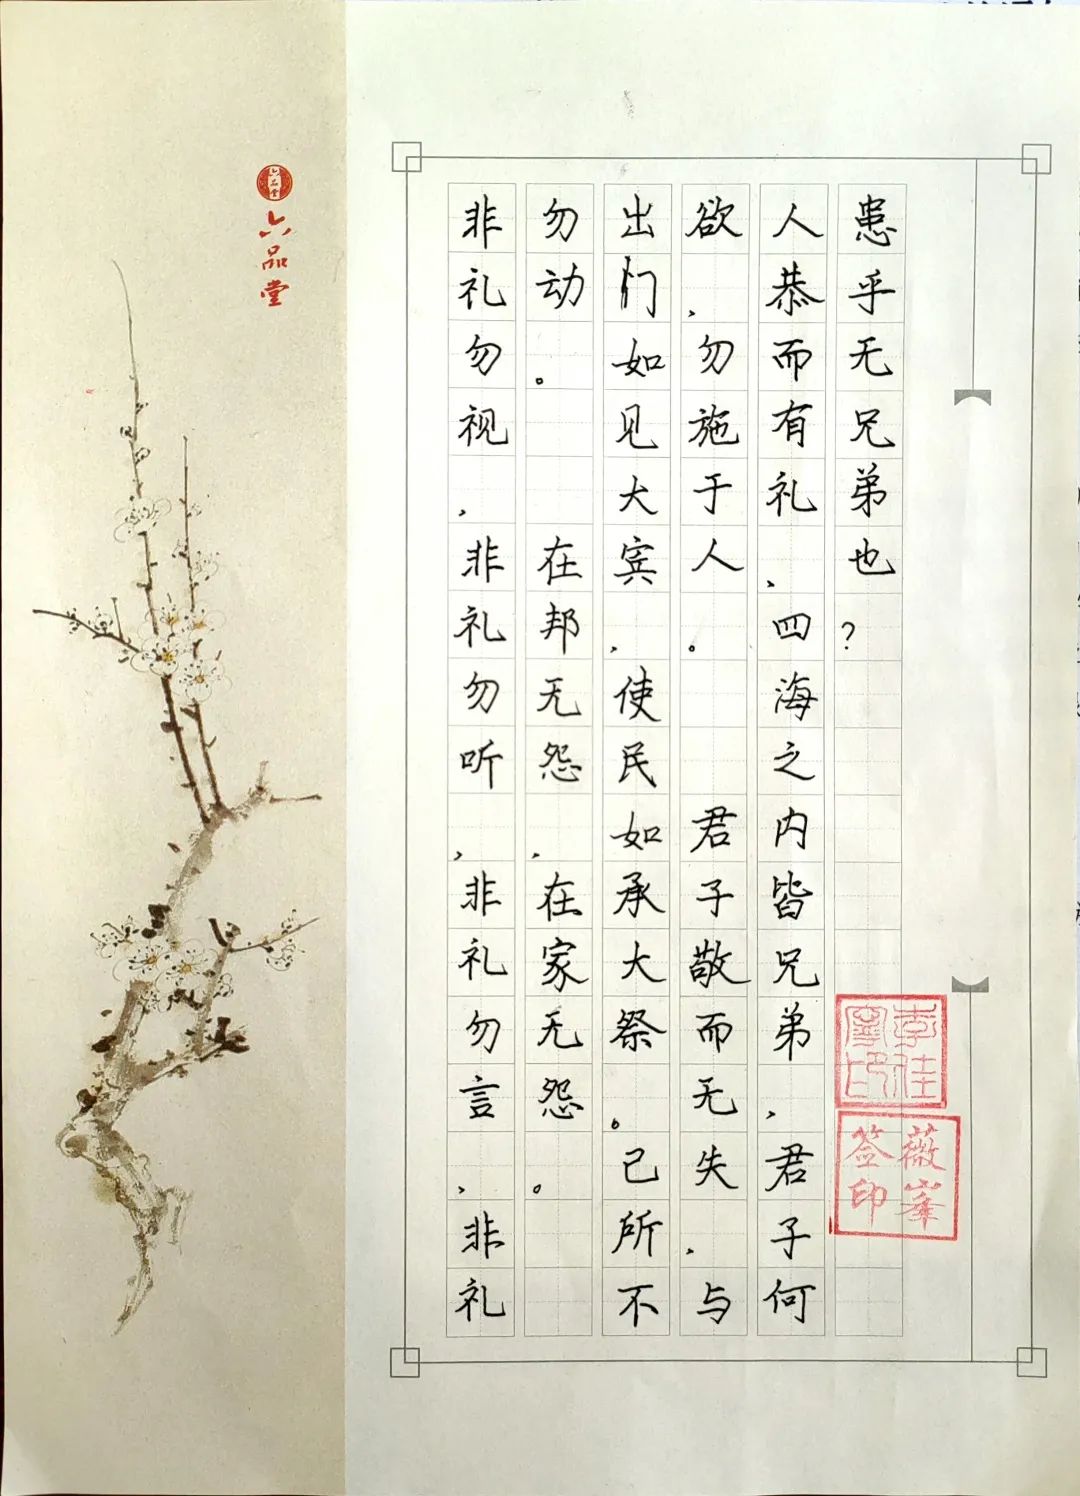 六品堂
六品堂
非礼勿视，非礼勿听，非礼勿言，非礼
勿动。 在邦无怨，在家无怨。
出门如见大宾，使民如承大祭。己所不
欲，勿施于人。 君子敬而无失，与
人恭而有礼，四海之内皆兄弟，君子何
患乎无兄弟也？
李佳寧印
薇峯签印